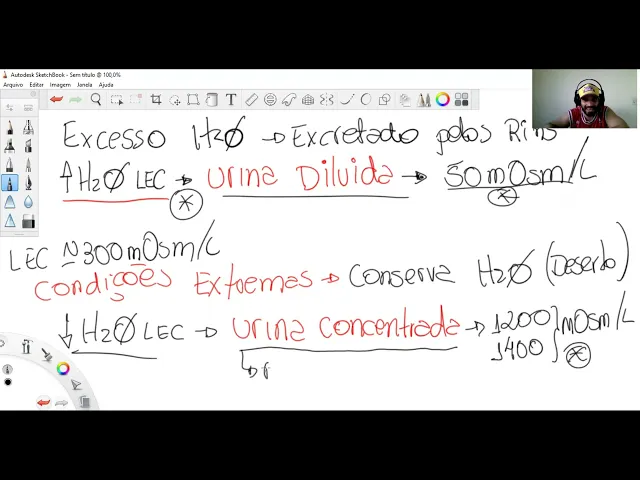 Autodesk SketchBook - Sem título @ 100,0%
Arquivo Editar Imagem Janela Ajuda
Excesso H2O → Excretado pelos Rins
↑ H2O LEC → Urina Diluida → 50 mOsm/L
LEC N 300 mOsm/L
Condições Extremas → Conserva H2O (Deserto)
↓ H2O LEC → Urina Concentrada → 1200 mOsm/L
1400